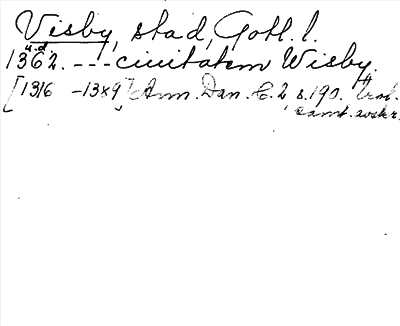 Visby, stad, Gotl. l.
u.d.
1362. --- ciuitatem Wisby.
[1316 -13x9] Ann. Dan. C. 2, s. 190. trol.
samt. avskr.